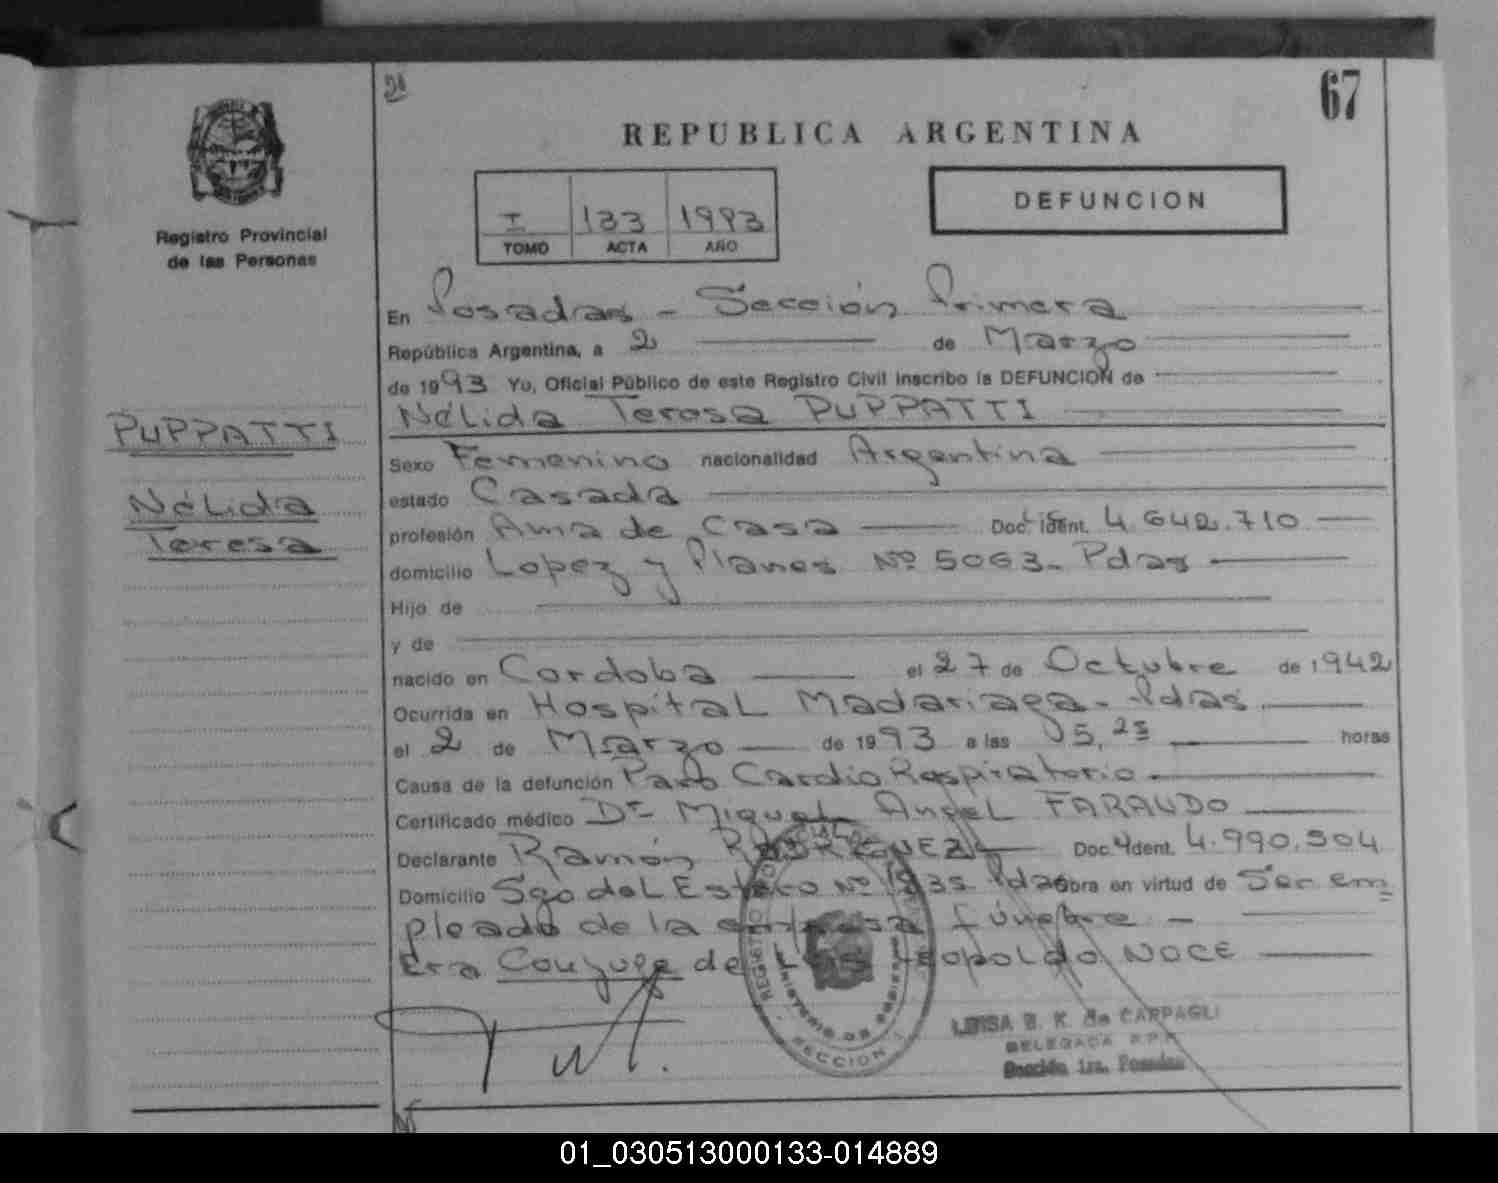 67
REPUBLICA ARGENTINA
Registro Provincial
de las Personas
I 133 1993
TOMO ACTA AÑO
DEFUNCION
En Posadas - Sección Primera
República Argentina, a 2 de Marzo
de 1993 Yo, Oficial Público de este Registro Civil inscribo la DEFUNCION de
Nélida Teresa PUPPATTI
PUPPATTI
Nélida
Teresa
Sexo Femenino nacionalidad Argentina
estado Casada
profesión Ama de Casa Doc. ident. 4.642.710
domicilio Lopez y Planes Nº 5063- Pdas
Hijo de
y de
nacido en Cordoba el 27 de Octubre de 1942
Ocurrida en Hospital Madariaga - Pdas
el 2 de Marzo de 1993 a las 05,25 horas
Causa de la defunción Paro Cardio Respiratorio
Certificado médico Dr Miguel Angel FARAUDO
Declarante Ramón RODRIGUEZ Doc. ident. 4.990.504
Domicilio Sgo del Estero Nº 1935 Pdas obra en virtud de Ser em=
pleado de la empresa fúnebre -
Era Conyuge de Luis Leopoldo NOCE
REGISTRO
MINISTERIO DE GOBIERNO
SECCION 1
LUISA B. K. de CARPAGLI
DELEGADA R.P.P.
Sección 1ra. Posadas
01_030513000133-014889